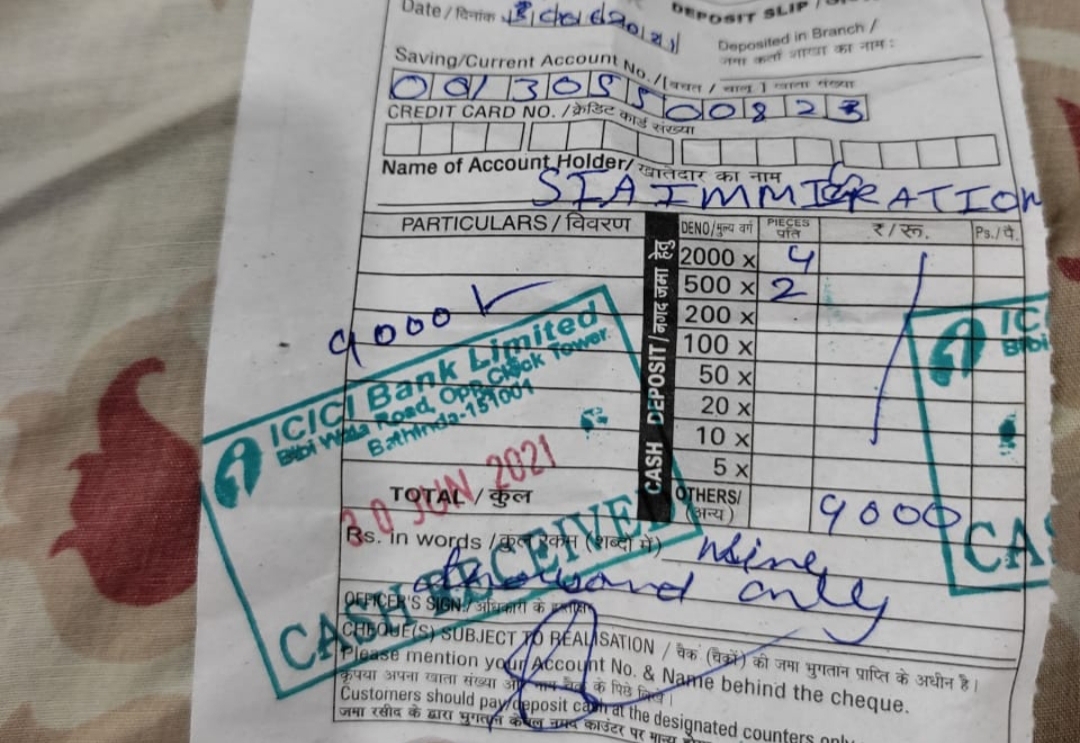 Date / दिनांक 30/06/2021
DEPOSIT SLIP /
Deposited in Branch /
जमा कर्ता शाखा का नाम :
Saving/Current Account No./[बचत / चालू] खाता संख्या
001305500823
CREDIT CARD NO. /क्रेडिट कार्ड संख्या
Name of Account Holder/ खातेदार का नाम
SIA IMMIGRATION
PARTICULARS / विवरण
CASH DEPOSIT/नगद जमा हेतु
DENO/मुल्य वर्ग PIECES ₹/रू. Ps./पै.
2000 x 4
500 x 2
200 x
100 x
50 x
20 x
10 x
5 x
9000
ICICI Bank Limited
Bibi Wala Road, Opp. Clock Tower
Bathinda-151001
30 JUN 2021
CASH RECEIVED
IC
Bibi
CA
TOTAL / कुल OTHERS/ (अन्य) 9000
Rs. in words /कुल रकम (शब्दो में) Nine
thousand only
OFFICER'S SIGN./ अधिकारी के
CHEQUE(S) SUBJECT TO REALISATION / चैक (चैकों) की जमा भुगतान प्राप्ति के अधीन है।
Please mention your Account No. & Name behind the cheque.
कृपया अपना खाता संख्या और नाम चैक के पिछे लिखें।
Customers should pay/deposit cash at the designated counters only
जमा रसीद के द्वारा भुगतान केवल नगद काउंटर पर मान्य